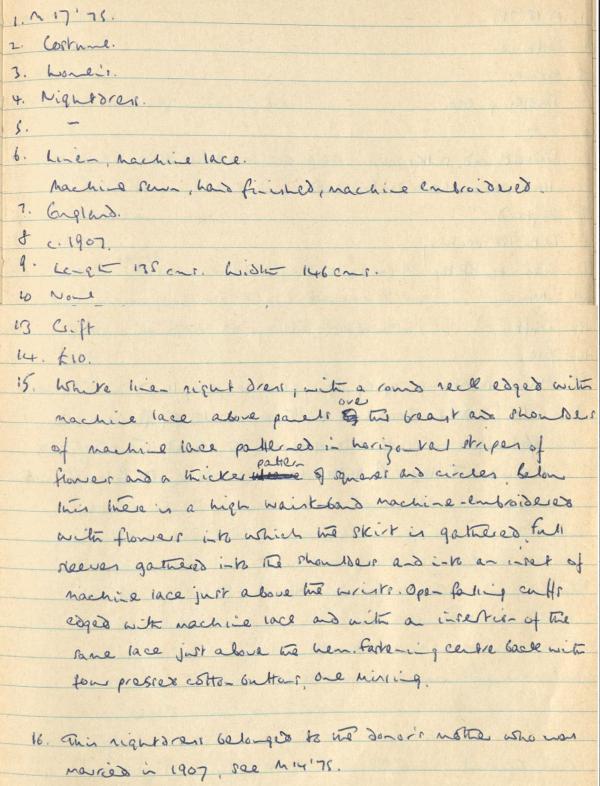 1. M 17'75.
2. Costume.
3. Women's.
4. Nightdress.
5. –
6. Linen, machine lace.
Machine sewn, hand finished, machine embroidered.
7. England.
8 c. 1907.
9. Length 135 cms. Width 146 cms.
10 None
13 Gift
14. £10.
15. White linen night dress, with a round neck edged with
machine lace above panels over the breast and shoulders
of machine lace patterned in horizontal stripes of
flowers and a thicker pattern of squares and circles. Below
this there is a high waist-band machine-embroidered
with flowers into which the skirt is gathered. Full
sleeves gathered into the shoulders and into an inset of
machine lace just above the wrists. Open falling cuffs
edged with machine lace and with an insertion of the
same lace just above the hem. Fastening centre back with
four pressed cotton buttons, one missing.
16. This nightdress belonged to the donor's mother who was
married in 1907, see M14'75.